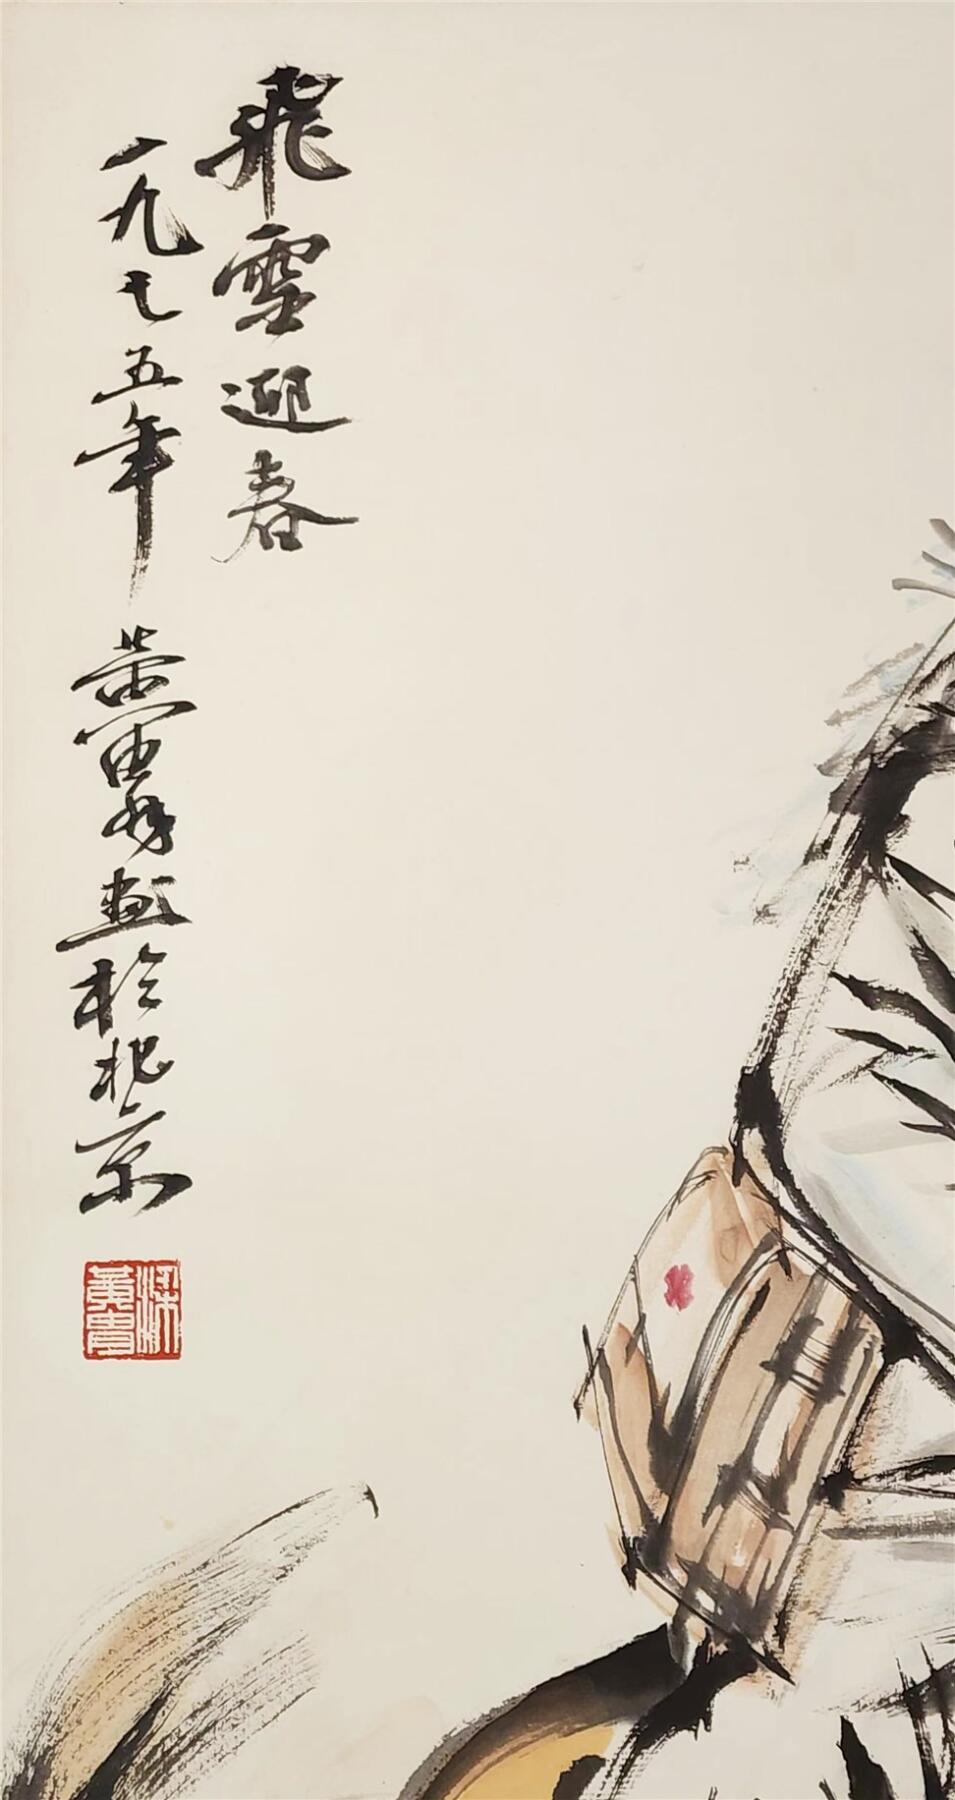 飛雪迎春
一九七五年 黄胄畫於北京
梁黄胄